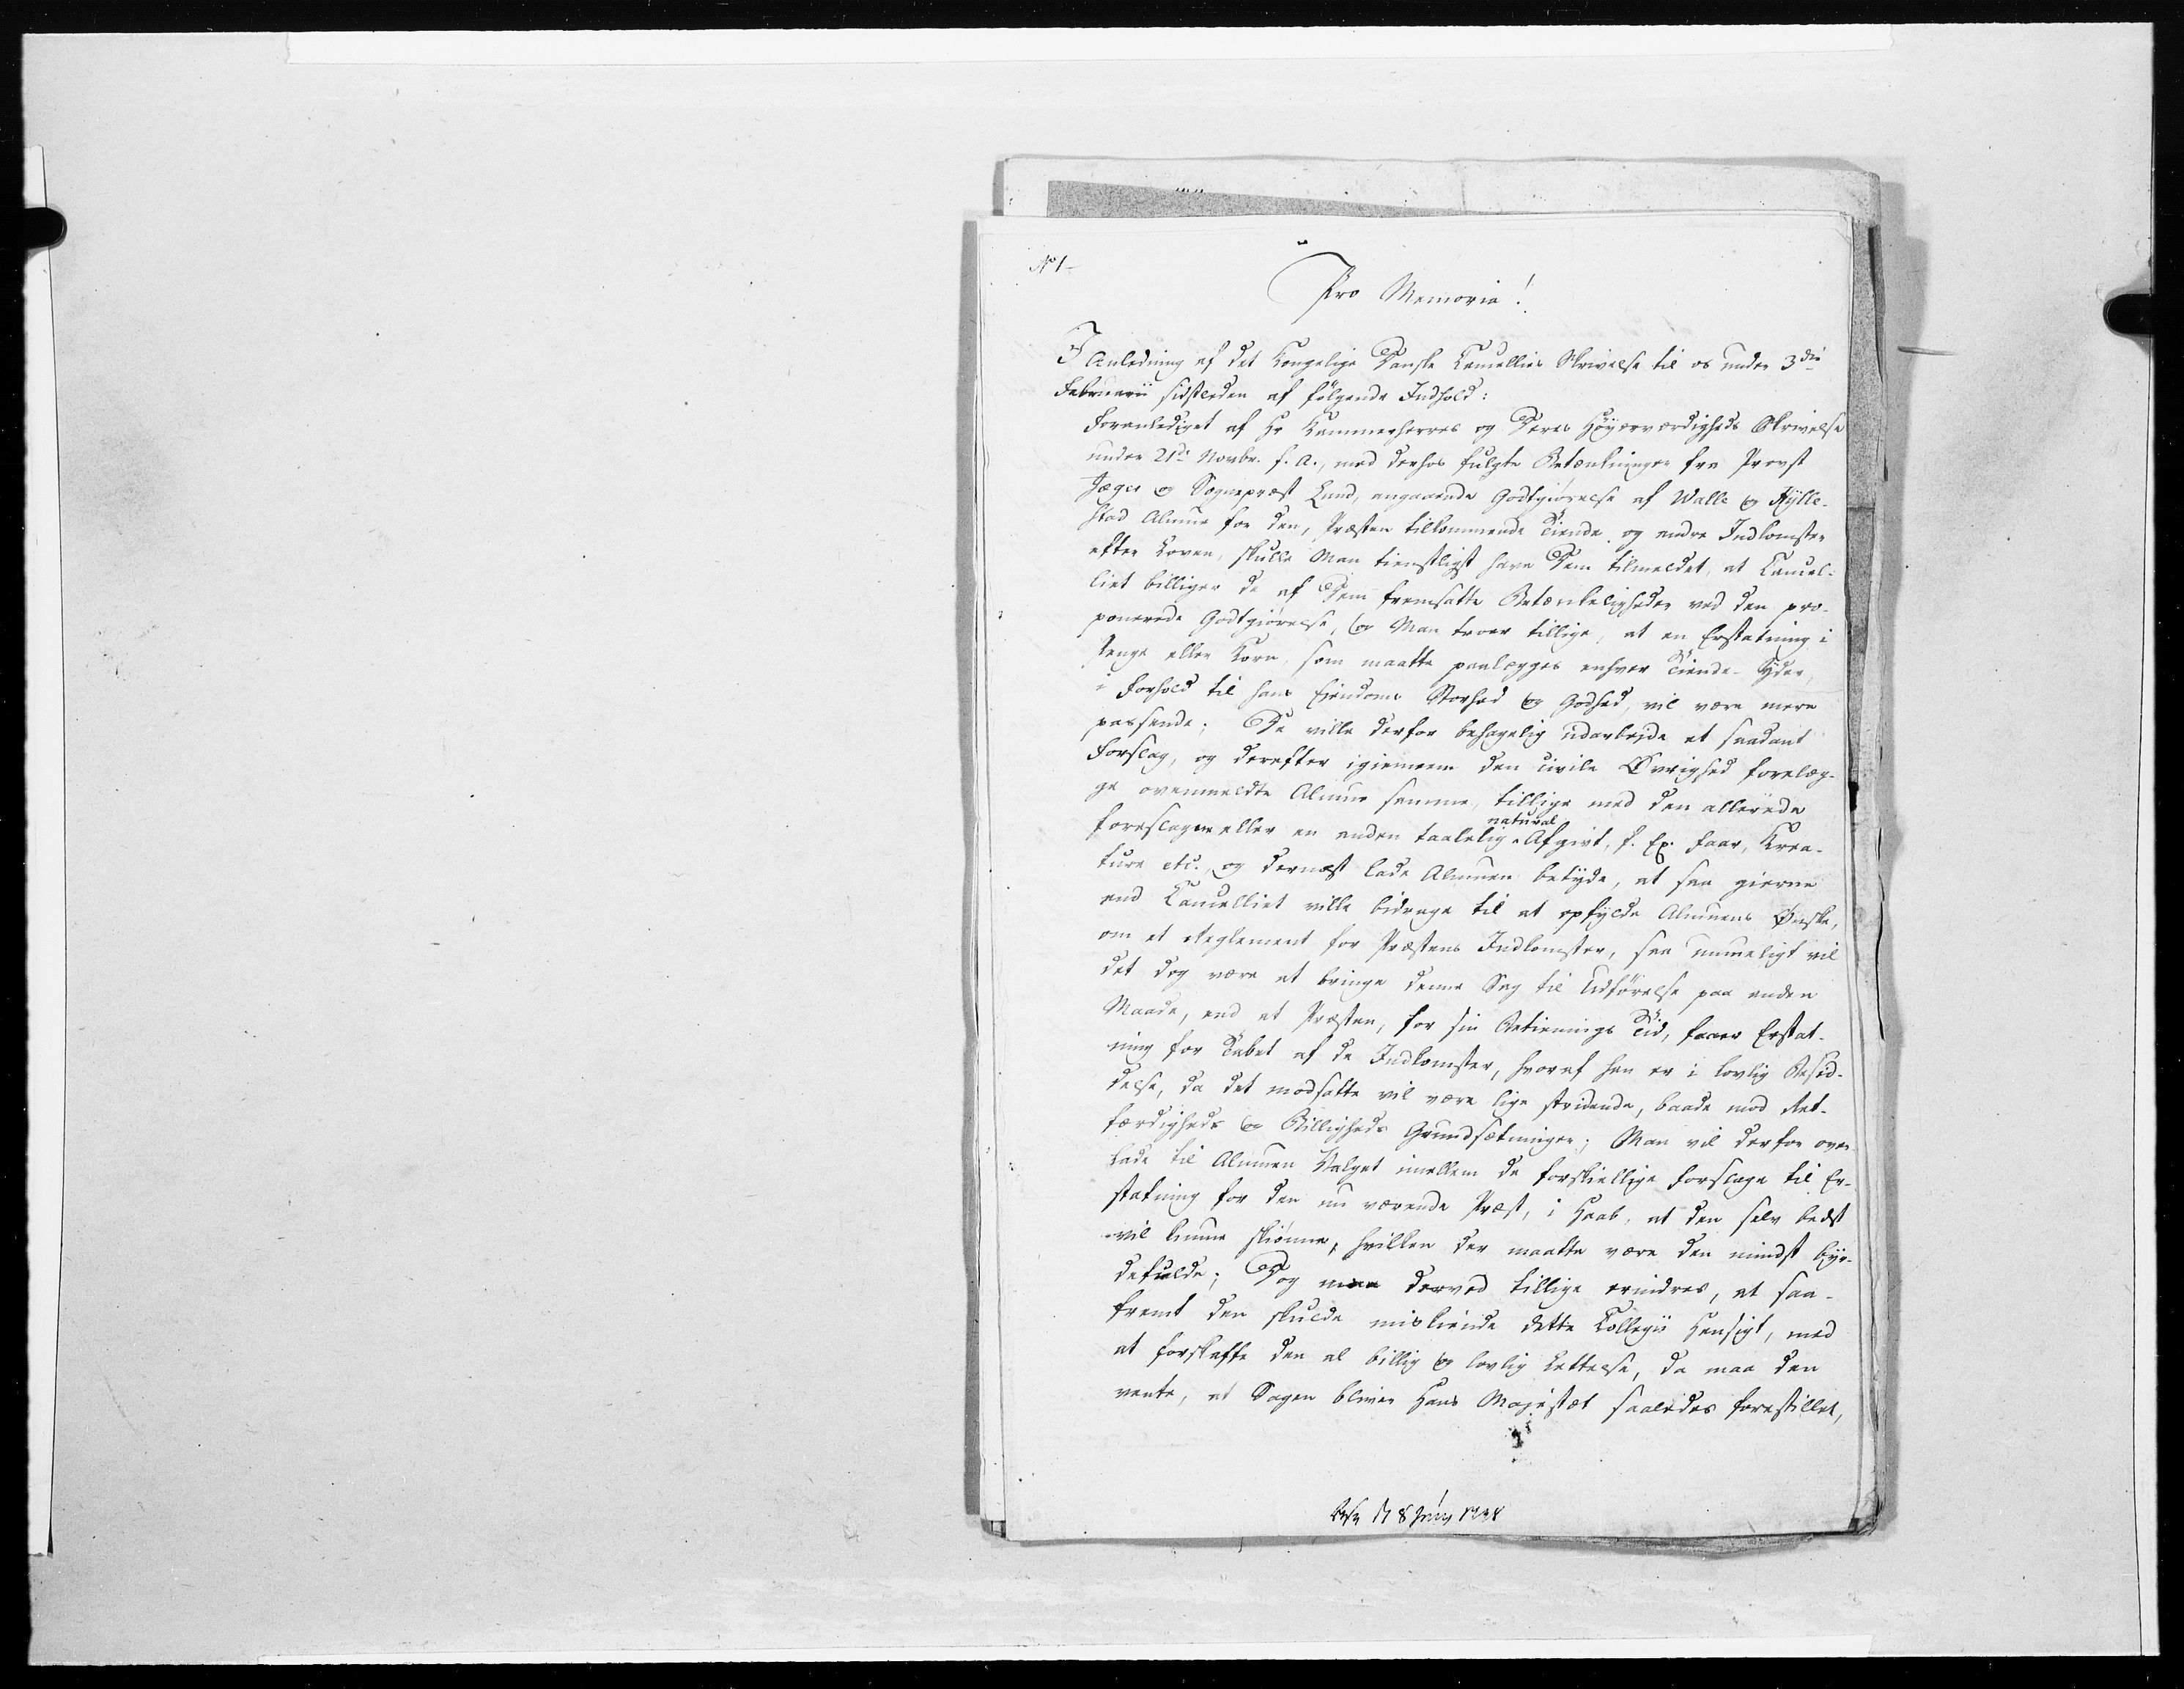 No 1-
Pro Memoria!
I Anledning af det Kongelige Danske Cancellies Skrivelse til os under 3die
Februarii sidstleden af følgende Indhold:
Foranlediget af Hr Kammerherres og Deres Høyærværdigheds Skrivelse
under 21de Novbr. f. A., med derhos fulgte Betænkninger fra Provst
Jæger og Sognepræst Lund, angaaende Godtgiørelse af Walle og Hylle-
stad Almue for den, Præsten tilkommende Tiende og andre Indkomster
efter Loven, skulle Man tienstligst have Dem tilmeldet, at Cancel-
liet billiger de af Dem fremsatte Betænkeligheder ved den pro-
ponerede Godtgiørelse, og Man troer tillige, at en Erstatning i
Penge eller Korn, som maatte paalægges enhver Tiende-Yder,
i Forhold til hans Eiendoms Storhed og Godhed, vil være mere
passende; De ville derfor behagelig udarbejde et saadant
Forslag, og derefter igiennem den civile Øvrighed forelæg-
ge ovenmeldte Almue samme, tillige med den allerede
natural
foreslagne eller en anden taalelig Afgivt, f. Ex. Faar, Krea-
ture etc., og dernæst lade Almuen betyde, at saa gierne
end Cancelliet ville bidrage til at opfylde Almuens Ønske,
om et Reglement for Præstens Indkomster, saa umueligt vil
det dog være at bringe denne Sag til Udførelse paa anden
Maade, end at Præsten, for sin Betienings Tid, faaer Erstat-
ning for Tabet af de Indkomster, hvoraf han er i lovlig Besid-
delse, da det modsatte vil være lige stridende, baade mod Ret-
færdigheds og Billigheds Grundsætninger; Man vil derfor over-
lade til Almuen Valget imellem de forskiellige Forslage til Er-
statning for den nu værende Præst, i Haab, at den selv bedst
vil kunne skiønne, hvilken der maatte være den mindst byr-
defulde; Dog maa derved tillige erindres, at saa-
fremt den skulde miskiende dette Collegii Hensigt, med
at forskaffe den al billig og lovlig Lettelse, da maa den
vente, at Sagen bliver Hans Majestæt saaledes forestillet,